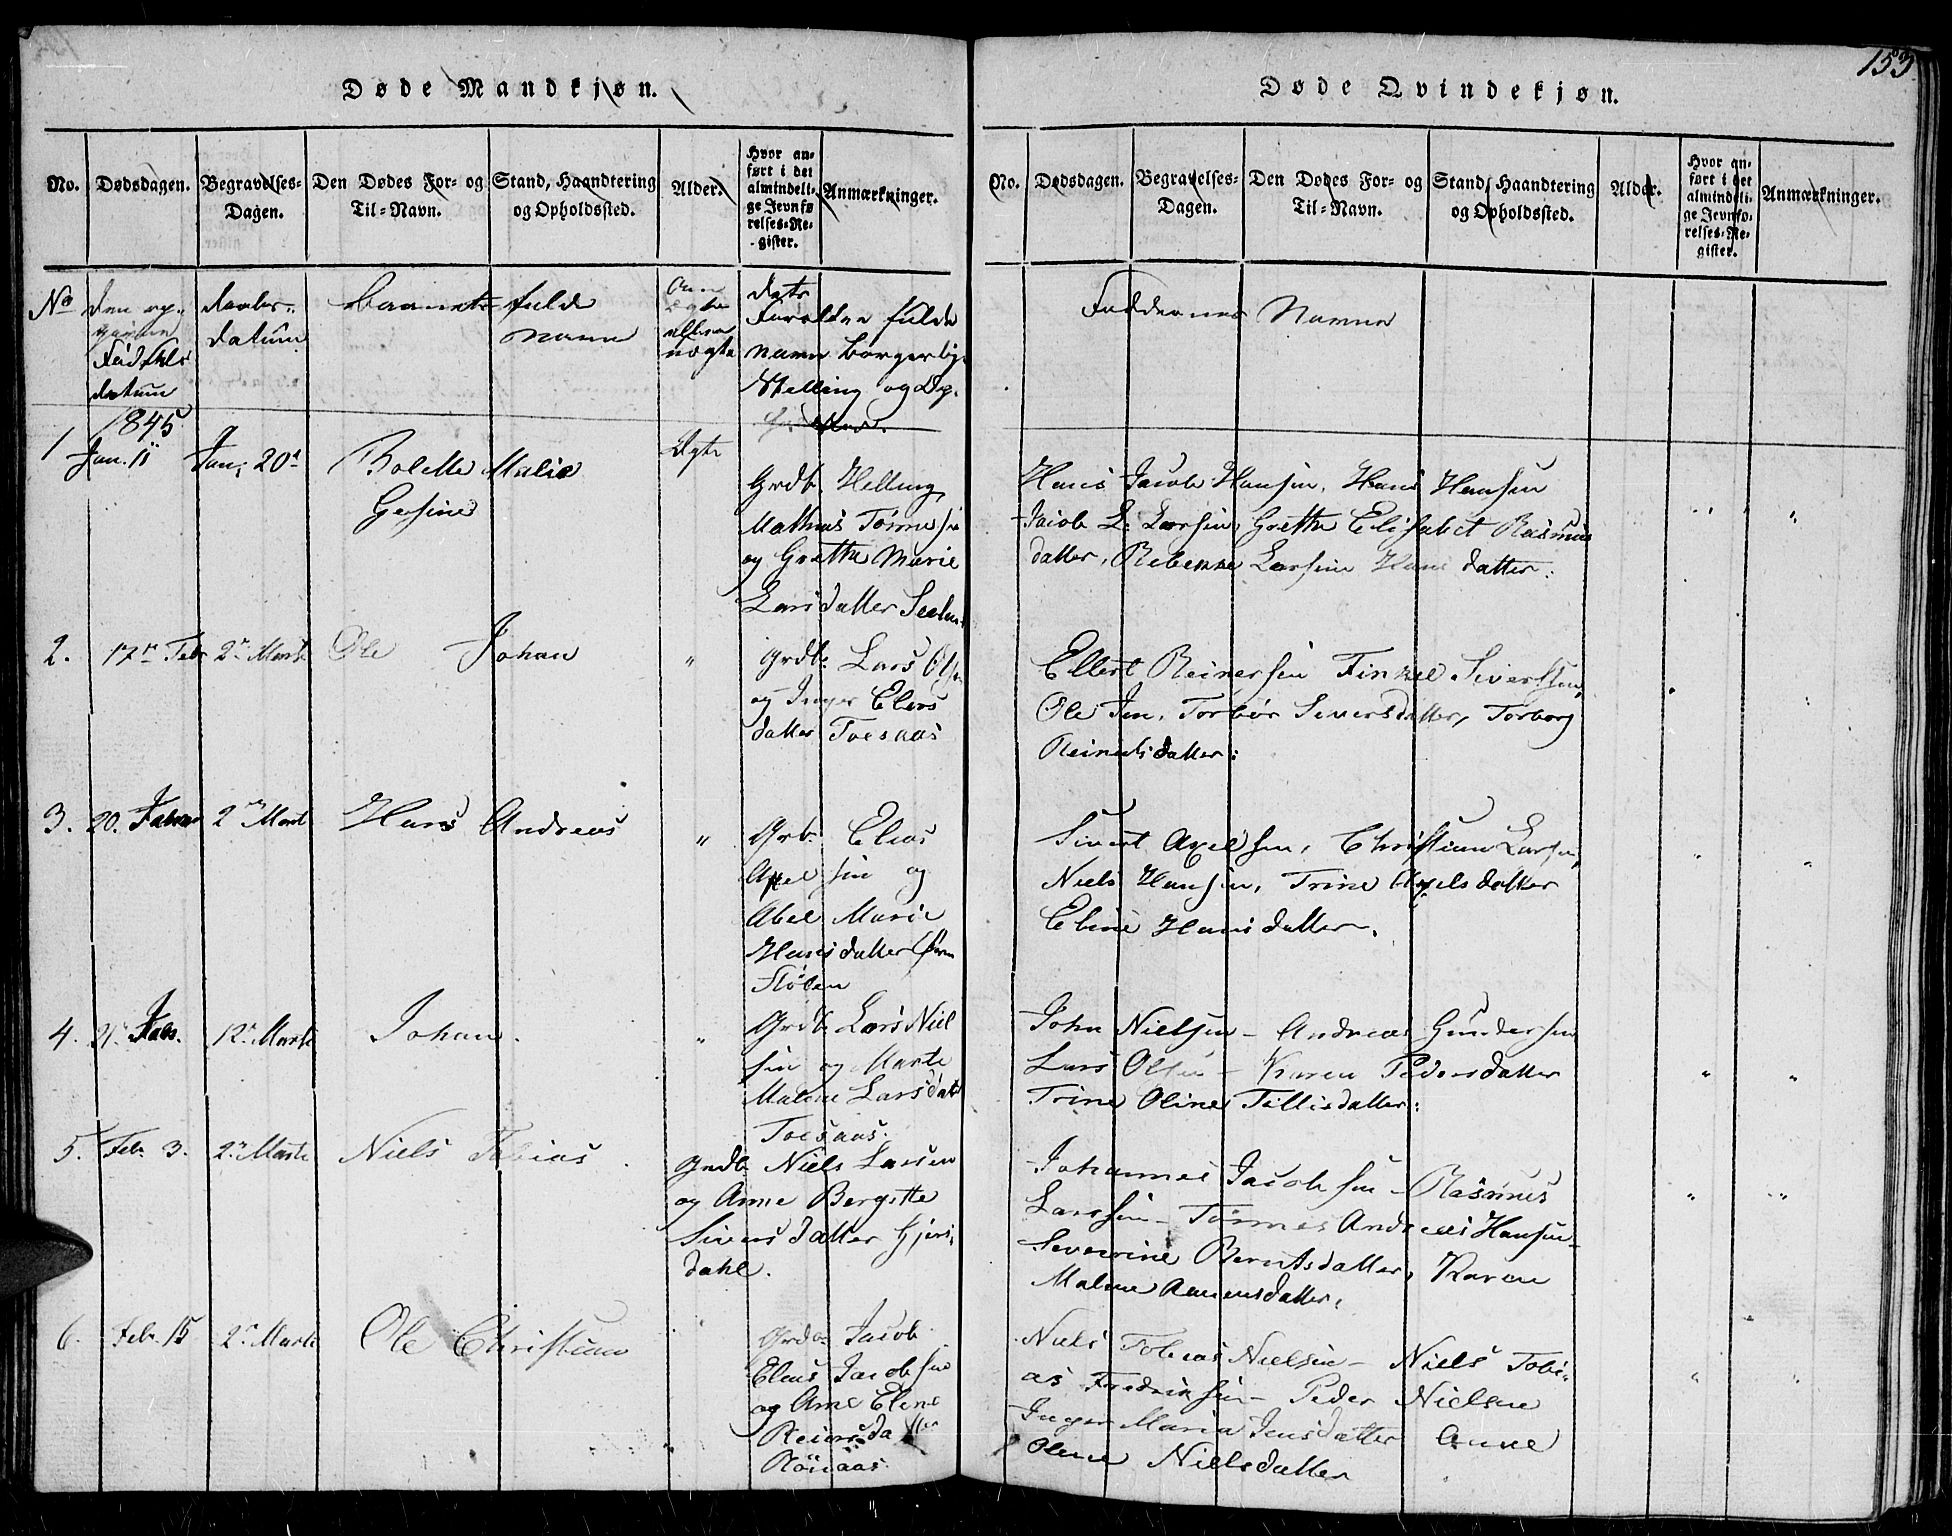 Døde Mandkjøn.
No. Dødsdagen. Begravelses-Dagen. Den Dødes For- og Til-Navn. Stand, Haandtering og Opholdssted. Alder. Hvor anført i det almindelige Jevnførelses-Register. Anmærkninger.
No den op-
givne
Fødsels
datum
daabs-
datum
barnets fulde
navn
Om
ægte
eller
uægte
dets
Forældre fulde
navn borgerlig
Stilling og Op-
1845
1 Jan. 11 Jan. 20de Bolette Malie
Gesine
Ægte
Grdb. Helling
Mathias Tønnesen
og Grethe Marie
Larsdatter
2. 17de Feb 2de Marts Ole Johan "
Grdb. Lars Olsen
og Inger Elens
datter Toesaas
3. 20. Febr 2de Marts Hans Andreas "
Grb. Elias
Axelsen og
Abel Marie
Hansdatter
Støben
4. 21de Feb. 12de Marts Johan. "
Grdb. Lars Niel
sen og Marte
Malene Larsdat
Toesaas.
5. Feb. 3. 2de Marts Niels Tobias
Grdb. Niels Larsen
og Anne Bergitte
Siversdatter Gjers-
dahl.
6. Feb. 15 2de Marts Ole Christian "
Grdb. Jacob
Elias Jacobsen
og Ane Elene
Reiersdatter
Røisaas
153
Døde Qvindekjøn.
No. Dødsdagen. Begravelses-Dagen. Den Dødes For- og Til-Navn. Stand, Haandtering og Opholdssted. Alder. Hvor anført i det almindelige Jevnførelses-Register. Anmærkninger.
Faddernes Navne
Hans Jacob Hansen, Hans Hansen
Jacob L. Larsen, Grethe Elisabet Rasmus
datter, Rebekke Larsine Hans datter:
Ellert Reinersen Finkel Sivertsen,
Ole Jen, Torbør Siversdatter, Torborg
Reinertsdatter:
Sivert Axelsen, Christian Larsen,
Niels Hansen, Trine Axelsdatter
Eline Hansdatter.
John Nielsen - Andreas Gundersen
Lars Olsen - Karen Pedersdatter
Trine Oline Tellisdatter:
Johannes Jacobsen - Rasmus
Larssen - Tønnes Andreas Hansen -
Severine Berntsdatter, Karen
Malene Aanensdatter,
Niels Tobias Nielsen - Niels Tobi-
as Fredriksen - Peder Nielsen
Inger Maria Jensdatter Anne
Olene Nielsdatter